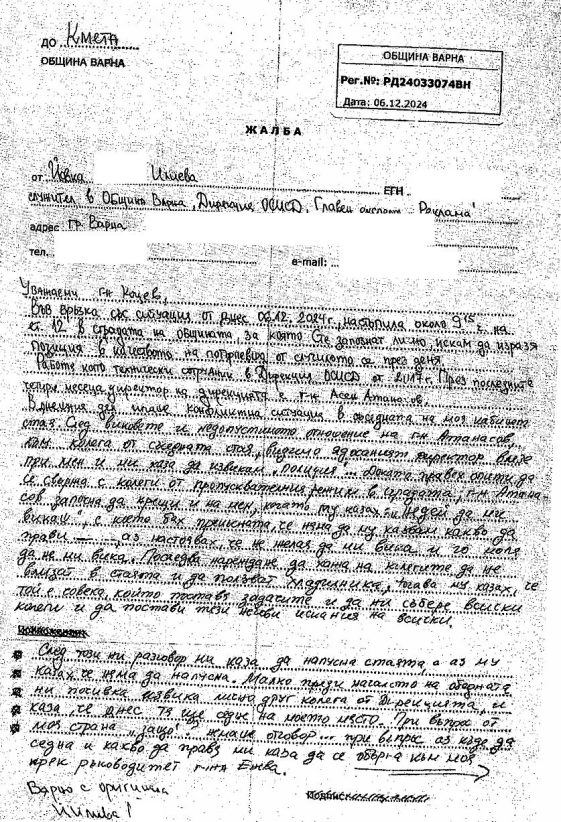 ДО Кмета
ОБЩИНА ВАРНА
ОБЩИНА ВАРНА
Рег.№: РД24033074ВН
Дата: 06.12.2024
ЖАЛБА
от Йовка Илиева ЕГН
служител в Община Варна, Дирекция ОСИСД, Главен експерт "Реклама"
адрес гр. Варна
тел. e-mail: ...
Уважаеми г-н Коцев,
Във връзка със ситуация от днес 06.12.2024г., настъпила около 9 15 ч. на
ет. 12 в сградата на общината, за която Сте запознат лично, искам да изразя
позиция в качеството на потърпевша от случилото се през деня.
Работя като технически сътрудник в Дирекция ОСИСД от 2017г. През последните
месеца директор на дирекцията е г-н Асен Атанасов.
В днешния ден имаше конфликтна ситуация в съседната на моя кабинет
стая. След виковете и недопустимото отношение на г-н Атанасов,
към колега от съседната стая, директор влезе
при мен и ми каза да извикам "полиция"... Докато правех опити да
се свържа с колеги от пропускателния режим в сградата, г-н Атана-
сов започна да крещи и на мен, когато му казах - "Недей да ми
викаш", с което бях прекъсната, че няма да му казвам какво да
прави —, аз настоявах, че не желая да ми вика и го моля
да не ми вика. Последва нареждане да кажа на колегите да не
влизат в стаята и да ползват хладилника, тогава му казах, че
той е човека, който поставя задачите и да ни събере всички
колеги и да постави тези негови искания на всички.
След този ни разговор ми каза да напусна стаята, а аз му
казах, че няма да напусна. Малко преди началото на обедната
ни почивка извика лично друг колега от Дирекцията, и
каза, че днес тя ще седне на моето място. При въпрос от
моя страна "защо" - нямаше отговор... при въпрос аз къде да
седна и какво да правя ми каза да се обърна към моя
прек ръководител г-жа Енева.
Вярно с оригинала